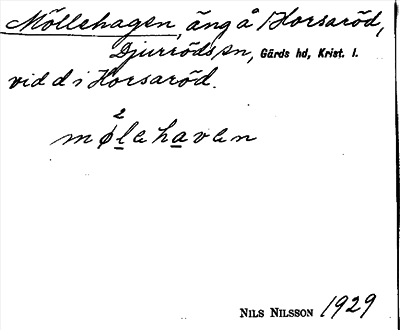 Möllehagen, äng å Horsaröd,
Djurröds sn, Gärds hd, Krist. l.
vid d i Horsaröd.
2
mølehaven
NILS NILSSON 1929